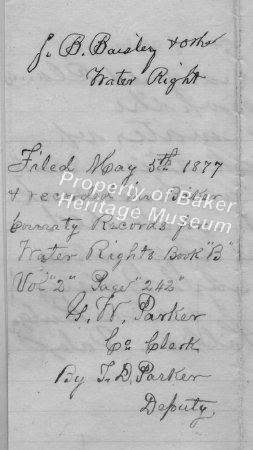 J. B. Baisley & others
Water Right
Filed May 5th 1877
& recorded in Baker
County Records for
Water Rights Book "B"
Vol "2" Page "242"
G. W. Parker
Co Clerk
By T. D. Parker
Deputy
Property of Baker
Heritage Museum